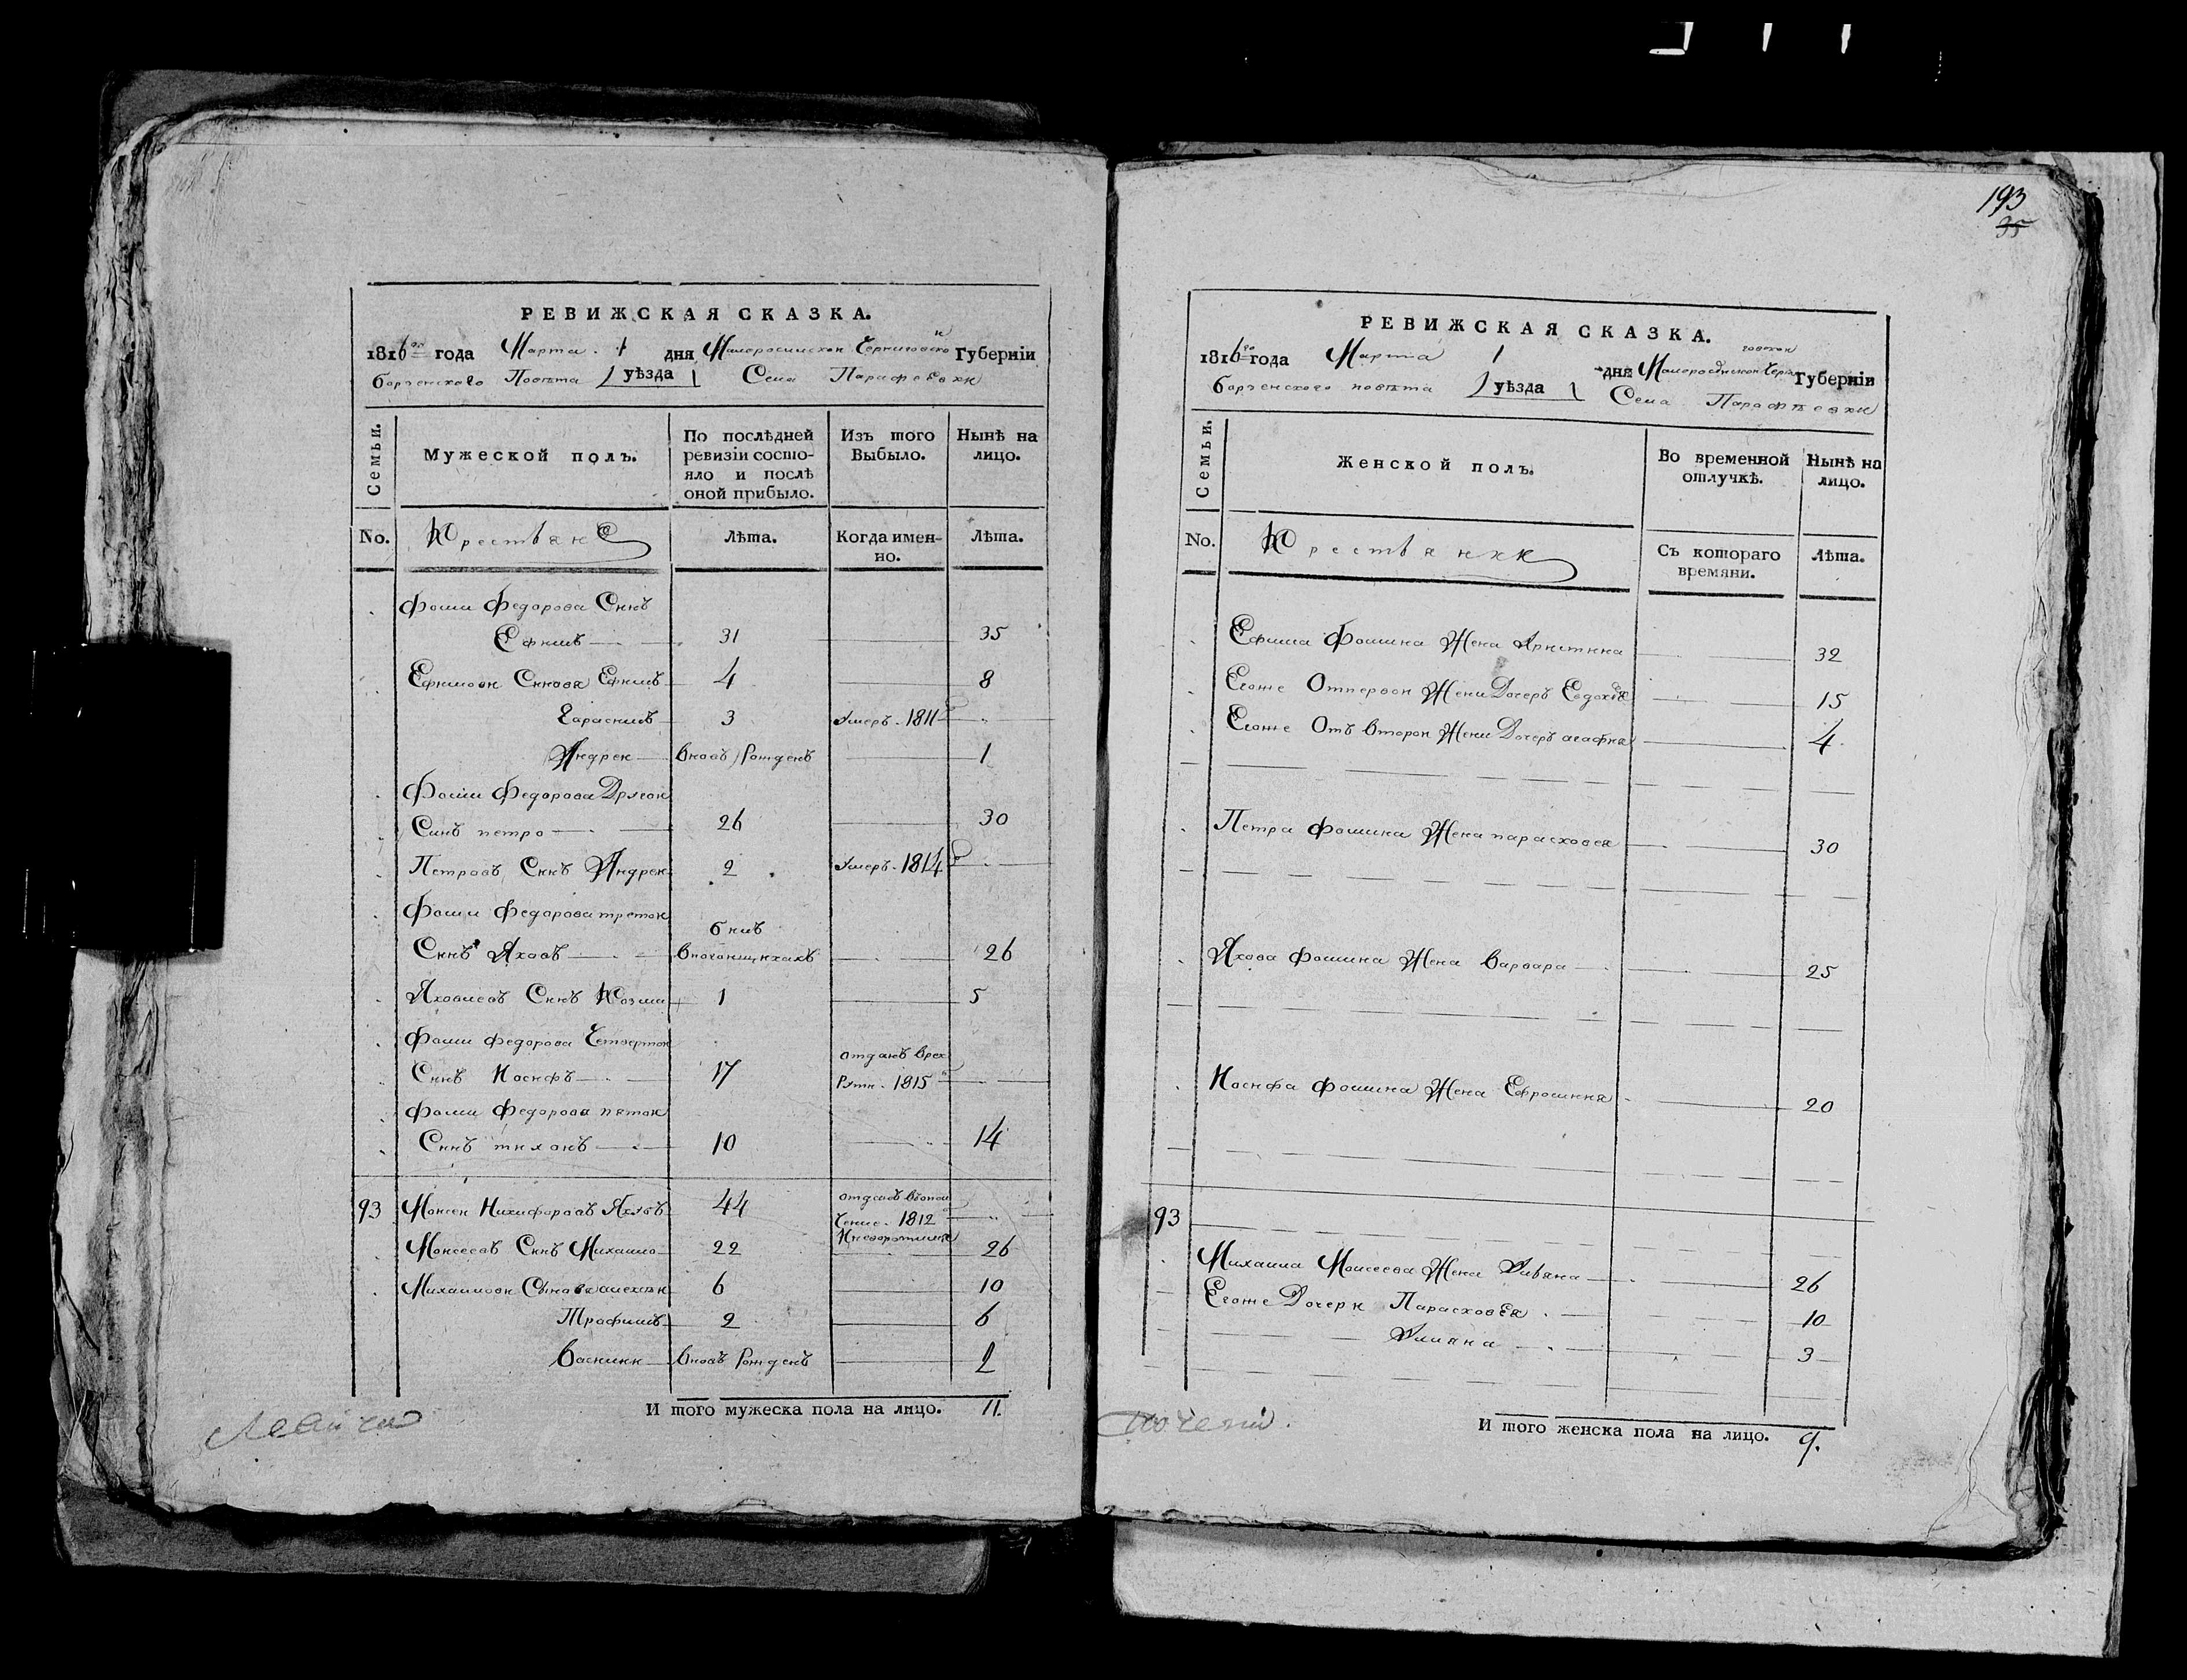 193
35
РЕВИЖСКАЯ СКАЗКА.
1816го года Марта 1 дня Малоросииской Черниговской Губерніи
борзенского Повета уѣзда Села Парафеевки
Семьи.
Мужеской полъ.
По послѣдней ревизіи состояло и послѣ оной прибыло.
Изъ того Выбыло.
Нынѣ на лицо.
No.
Крестьяне
Лѣта.
Когда именно.
Лѣта.
Фоми Федорова Синъ
Ефимъ 31 35
Ефимови Синовя Ефимъ 4 8
Гарасимъ 3 Умеръ 1811
Андреи вновъ Рожденъ 1
Фоми Федорова Другои
Синъ петро 26 30
Петровъ Синъ Андреи 2 Умеръ 1814
Фоми Федорова третои
билъ
Синъ Яковъ 26
Яковлевъ Синъ Козма 1 5
Фоми Федорова Четвертои
отданъ в рек
Синъ Иосифъ 17 Рути 1815
Фоми Федорова пятои
Синъ тихонъ 10 14
93 Моисеи Никифоровъ 44 отданъ
1812
Моисеевъ Синъ Михаило 22 26
Михаилови Сынавя алексеи 6 10
Трофимъ 2 6
Василии вновъ Рожденъ 2
И того мужеска пола на лицо. 11.
РЕВИЖСКАЯ СКАЗКА.
1816го года Марта 1 дня Малоросииской Чернговской Губерніи
борзенского повета уѣзда Села Парафѣевки
Семьи.
Женской полъ.
Во временной отлучкѣ.
Нынѣ на лицо.
No.
Крестьянки
Съ котораго времяни.
Лѣта.
Ефима Фомина Жена Христина 32
Егоже От первои Жени Дочеръ Евдокія 15
Егоже Отъ второи Жени Дочеръ агафия 4
Петра Фомина Жена парасковея 30
Якова Фомина Жена Варвара 25
Иосифа Фомина Жена Ефросиния 20
93
Михаила Моисеева Жена Улияна 26
Егоже Дочери Парасковея 10
Улияна 3
И того женска пола на лицо. 9.